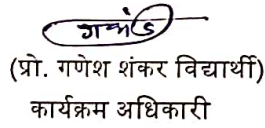 (प्रो. गणेश शंकर विद्यार्थी)
कार्यक्रम अधिकारी